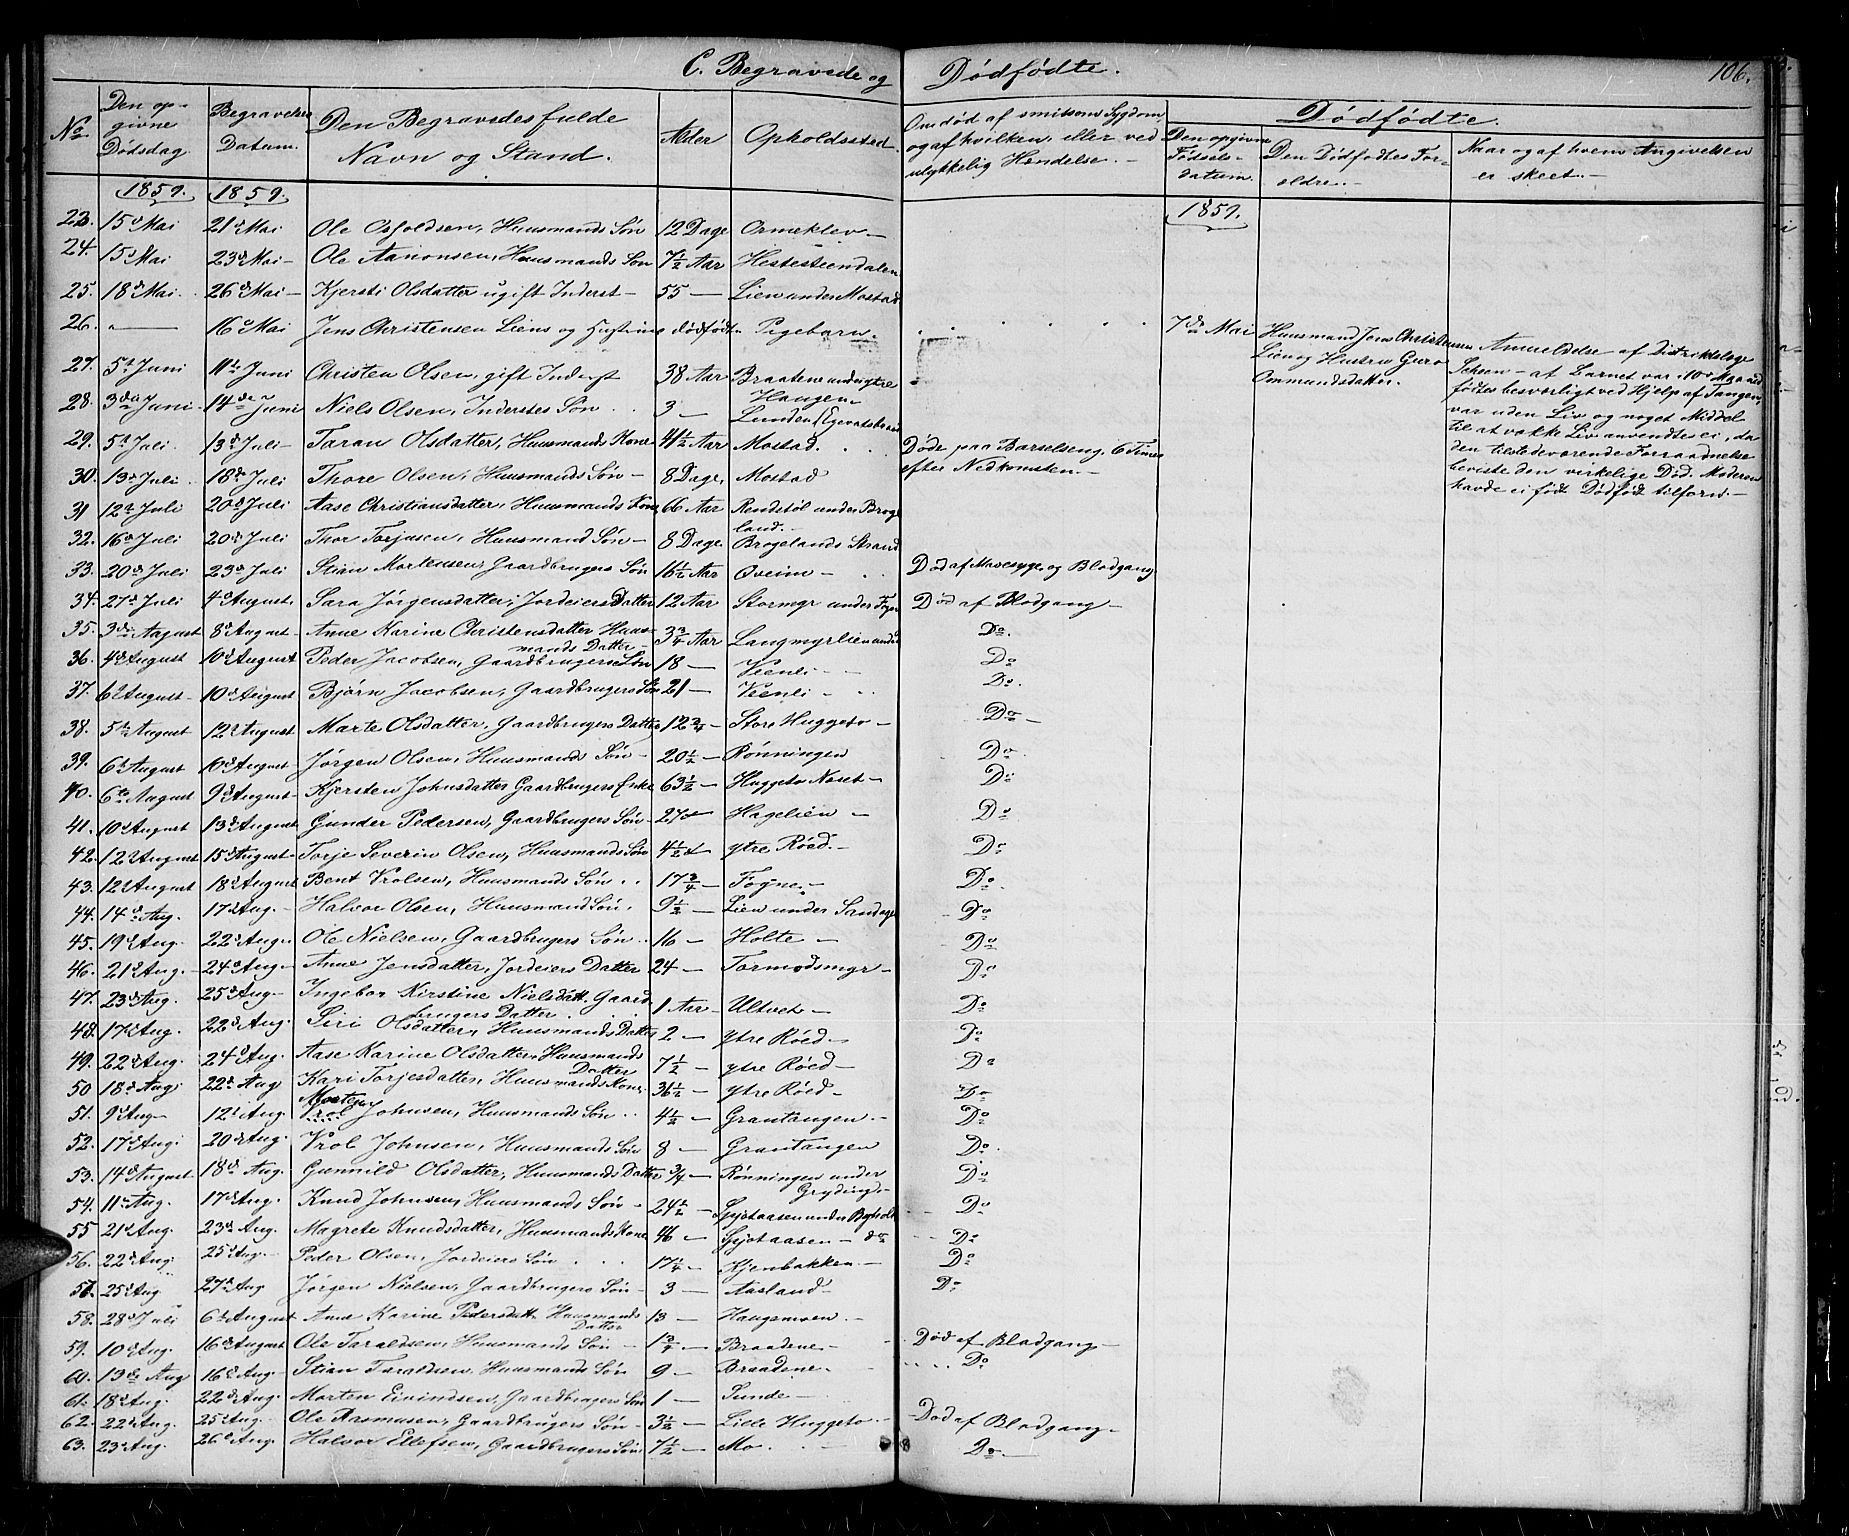 C. Begravsde og Dødfødte. 106.
No. Den opgivne Dødsdag. Begravelses Datum. Den Begravedes fulde Navn og Stand. Alder Opholdssted. Om død af smitsom Sygdom, og af hvilken, eller ved ulykkelig Hendelse. Dødfødte. Den opgivne Fødselsdatum. Den Dødfødtes Foreldre. Naar og af hvem Angivelsen er skeet.
1859. 1859. 1859.
23. 15d Mai 21d Mai Ole Osfoldsen, Huusmands Søn 12 Dage Ormeklev
24. 15d Mai 23d Mai Ole Aanonsen, Huusmands Søn 7½ Aar Hestesteendalen
25. 18d Mai 26d Mai Kjersti Olsdatter ugift Inderst 55 Lien under Mostad
26. 16d Mai Jens Christensen Liens og Hustrus dødfødte Pigebarn.
7de Mai Huusmand Jens Christensen Lien og Hustru Guro Ommundsdatter.
Anmeldelse af Distriktslæge
Scheen – af Barnet var i 10d Maaned
fødtes besværligt ved Hjelp af Tangen,
var uden Liv og noget Middel
til at vække Liv anvendtes ei, da
den tilstedeværende Forraadnelse
beviste den virkelige Død. Moderen
havde ei født Dødfødt tilforn.
27. 5te Juni 11te Juni Christen Olsen, gift Inderst 38 Aar Braatene under ytre Haugen
28. 3die Juni 14de Juni Niels Olsen, Inderstes Søn 3 Lunden
29. 5te Juli 13d Juli Taran Olsdatter, Huusmands Kone 41½ Aar Mostad. Døde paa Barselseng, 6 Timer efter Nedkomsten.
30. 13d Juli 18d Juli Thore Olsen, Huusmands Søn 8 Dage, Mostad
31 12te Juli 20d Juli Aase Christiansdatter, Huusmands Kone 66 Aar Rendstøl under Brogeland.
32. 16d Juli 20d Juli Thor Torjusen, Huusmand Søn 8 Dage Brogelands Strand
33. 20d Juli 23d Juli Stian Mortensen, Gaardbrugers Søn 16½ Aar Oveim Død af Mavesyge og Blodgang
34. 27d Juli 4d August. Sara Jørgensdatter, Jordeiers Datter 12 Aar Stormyr under Død af Blodgang
35. 3die August 8d August Anne Karine Christensdatter Huusmands Datter 3¾ Aar Langmyrlien under Do.
36. 4d August 10d August Peder Jacobsen, Gaardbrugers Søn 18 Veenli Do
37. 6d August 10d August Bjørn Jacobsen, Gaardbrugers Søn 21 Veenli Do.
38. 5te August 12d August Marte Olsdatter, Gaardbrugers Datter 12¾ Store Huggeto Do
39. 6d August 10d August Jørgen Olsen, Huusmands Søn 20½ Rønningen Do
40. 6te August 9d August Kjersten Johnsdatter Gaardbrugers Enke 63½ Huggeto Neset Do
41. 10d August 13d August Gunder Pedersen, Gaardbrugers Søn 27 Hagelien Do
42. 12d August 15d August Torje Severin Olsen, Huusmands Søn 4½ ytre Røed. Do
43. 12d August 18d August Bent Vrolsen, Huusmands Søn 17¾ Fogne Do.
44. 14d Aug. 17d Aug. Halvor Olsen, Huusmand Søn, 9½ Lien under Sandage Do
45. 19d Aug. 22d Aug. Ole Nielsen, Gaardbrugers Søn 16 Holte Do
46. 21d Aug. 24d Aug. Anne Jensdatter, Jordeiers Datter 24 Tormodsmyr Do
47. 23d Aug. 25d Aug. Ingebor Kirstine Nielsdatt. Gaardbrugers Datter 1 Aar Ultveit Do
48. 17d Aug. 22d Aug. Siri Olsdatter, Huusmands Datter 2 ytre Røed Do
49. 22d Aug. 24d Aug. Aase Karine Olsdatter, Huusmands Datter 7½ ytre Røed Do
50 18d Aug. 22d Aug Kari Torjesdatter, Huusmands Kone 36½ ytre Røed Do
51. 9d Aug 12d Aug. Morten Vrol Johnsen, Huusmands Søn 4½ Grantangen. Do
52. 17d Aug. 20d Aug. Vrol Johnsen, Huusmands Søn 8 Grantangen Do.
53. 14d August 18d Aug. Gunnild Olsdatter, Huusmands Datter ¾ Rønningen under Gryding Do
54. 11te Aug. 17d Aug. Knud Johnsen, Huusmands Søn 24½ under Do
55 21d Aug. 23d Aug. Magrete Knudsdatter, Huusmands Kone 46 do Do
56. 22d Aug. 25d Aug. Peder Olsen, Jordeiers Søn 17¼ Kjenbakken Do
57. 25d Aug 27d Aug Jørgen Nielsen, Gaardbrugers Søn 3 Aasland Do
58. 28d Juli 6te August Anne Karine Pedersdatt. Huusmands Datter 13 Haugmoen
59. 10d Aug. 16d August Ole Taraldsen, Huusmands Søn 1¾ Braadene Død af Blodgang
60. 13de Aug 16d Aug. Stian Taraldsen, Huusmands Søn 9 Braadene Do
61. 18d Aug. 22d Aug. Morten Eivindsen, Gaardbrugers Søn 1 Sunde
62. 22d Aug. 25d Aug. Ole Rasmusen, Gaardbrugers Søn 3½ Lille Huggeto Død af Blodgang
63. 23d Aug. 26d Aug. Halvor Ellefsen, Gaardbrugers Søn 7½ Mo. Do